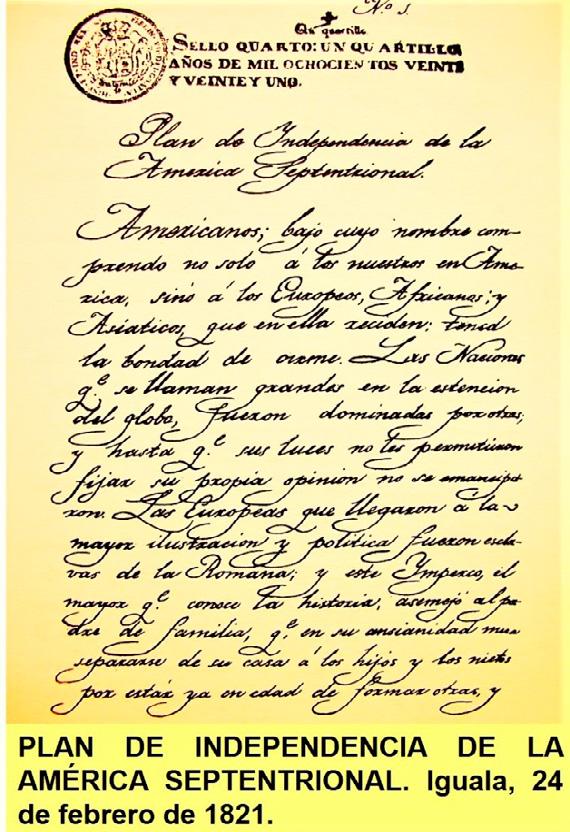 Nº 1.
Un quartillo
SELLO QUARTO: UN QUARTILLO,
AÑOS DE MIL OCHOCIENTOS VEINTE
Y VEINTE Y UNO.
Plan de Independencia de la
America Septentrional.
Americanos; bajo cuyo nombre com-
prendo no solo á los nuestros en Ame-
rica, sinó á los Europeos, Africanos; y
Asiaticos, que en ella reciden: tened
la bondad de oirme. Las Naciones
q.e se llaman grandes en la estencion
del globo, fueron dominadas por otras;
y hasta q.e sus luces no les permitieron
fijar su propia opinion no se emancipa-
ron. Las Europeas que llegaron á la
mayor ilustracion y politica fueron escla-
vas de la Romana; y este Ymperio, el
mayor q.e conoce la historia, asemejó al pa-
dre de familia, q.e en su ansianidad mira
separarse de su casa á los hijos y los nietos
por estár ya en edad de formar otras, y
PLAN DE INDEPENDENCIA DE LA
AMÉRICA SEPTENTRIONAL. Iguala, 24
de febrero de 1821.